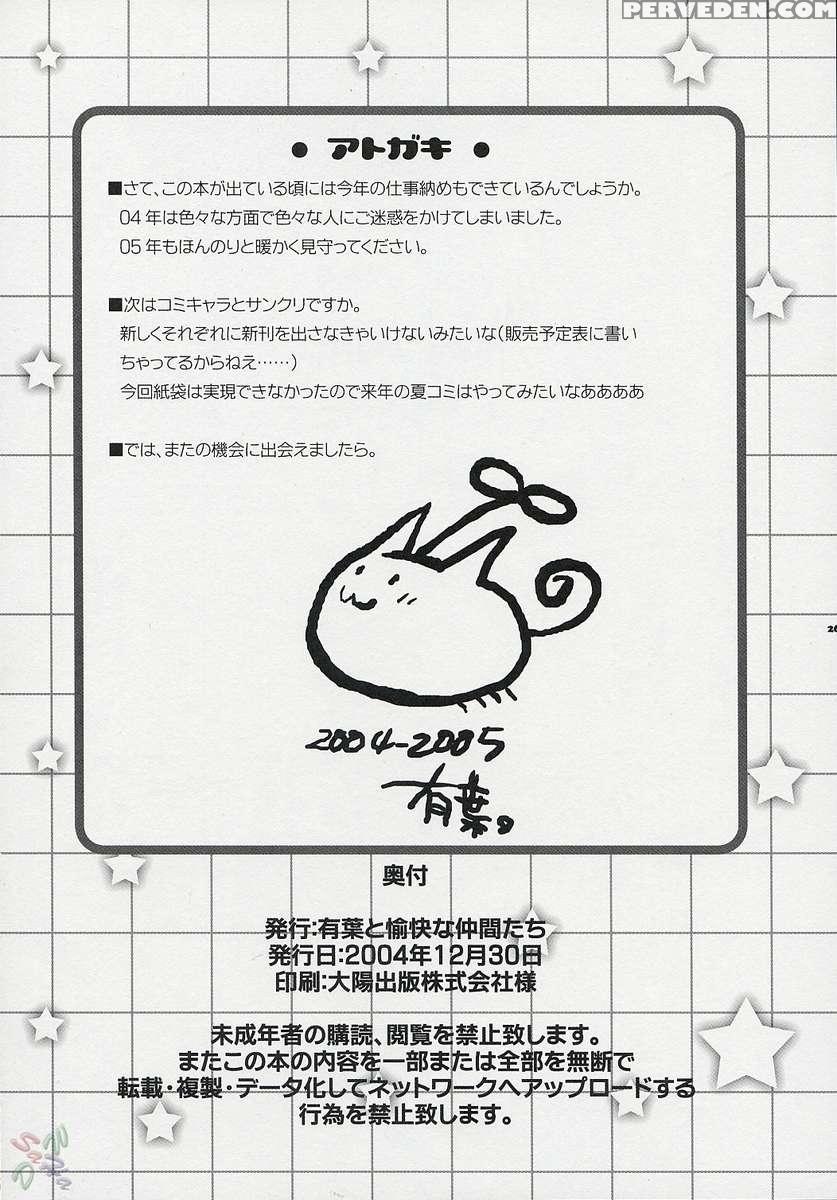 PERVEDEN.COM
● アトガキ ●
■さて、この本が出ている頃には今年の仕事納めもできているんでしょうか。
04年は色々な方面で色々な人にご迷惑をかけてしまいました。
05年もほんのりと暖かく見守ってください。
■次はコミキャラとサンクリですか。
新しくそれぞれに新刊を出さなきゃいけないみたいな(販売予定表に書い
ちゃってるからねえ……)
今回紙袋は実現できなかったので来年の夏コミはやってみたいなああああ
■では、またの機会に出会えましたら。
2004-2005
有葉。
奥付
発行:有葉と愉快な仲間たち
発行日:2004年12月30日
印刷:大陽出版株式会社様
未成年者の購読、閲覧を禁止致します。
またこの本の内容を一部または全部を無断で
転載・複製・データ化してネットワークへアップロードする
行為を禁止致します。